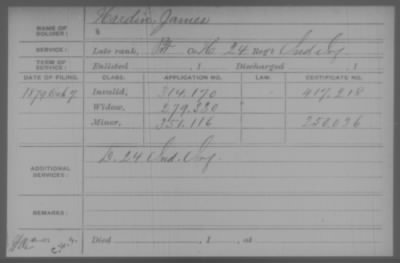 NAME OF SOLDIER: Hardin James
SERVICE: Late rank, Co. H, 24 Reg't Ind Inf
TERM OF SERVICE: Enlisted , 1 Discharged , 1
DATE OF FILING. CLASS. APPLICATION NO. LAW. CERTIFICATE NO.
1879 Invalid, 314,170 417,218
Widow, 279,220
Minor, 351,116 250,026
ADDITIONAL SERVICES: D. 24 Ind. Inf.
REMARKS:
Died , 1 , at